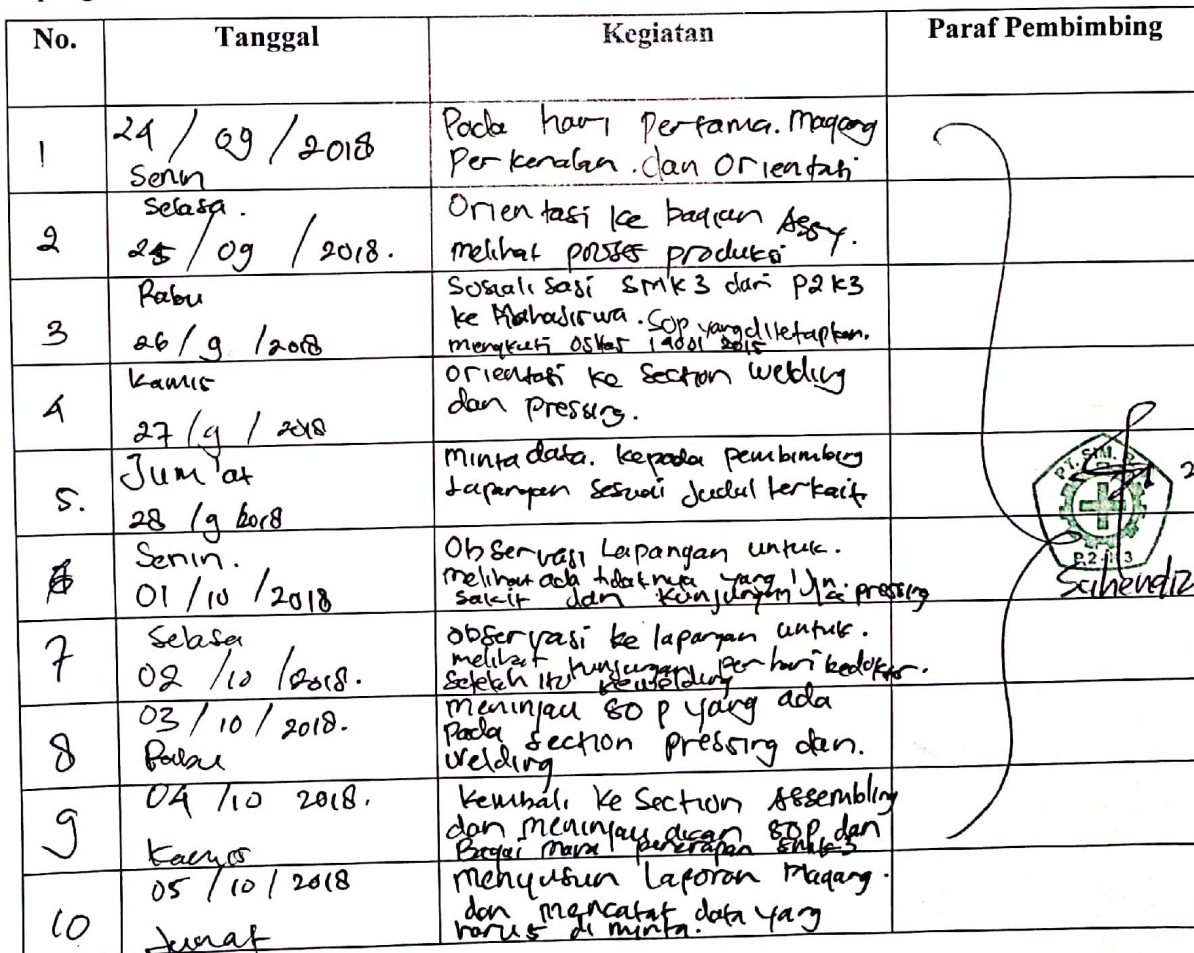 No. Tanggal Kegiatan Paraf Pembimbing
1 24 / 09 / 2018 Pada hari Pertama. Magang
Senin Perkenalan. dan Orientasi
2 Selasa. Orientasi ke bagian Assy.
25 / 09 / 2018. melihat proses produksi
3 Rabu Sosialisasi SMK3 dari P2K3
26 / 9 / 2018 ke Mahasiswa. SOP yang ditetapkan.
mengikuti 14001 2015
4 Kamis orientasi ke Section welding
27 / 9 / 2018 dan pressing.
5. Jum'at minta data. kepada pembimbing
28 / 9 2018 Lapangan Sesuai Judul terkait
PT. SIM.
P.2.K3
Suhendiz
6 Senin. Observasi Lapangan untuk.
01 / 10 / 2018 melihat ada tidaknya yang
sakit dan kunjungan ke pressing
7 Selasa observasi ke lapangan untuk.
02 / 10 / 2018. melihat kunjungan per hari kedokter.
Setelah itu kewelding
8 03 / 10 / 2018. meninjau SOP yang ada
Rabu Pada Section pressing dan.
welding
9 04 / 10 2018. Kembali ke Section Assembling
Kamis dan meninjau SOP dan
Bagai mana penerapan SMK3
10 05 / 10 / 2018 menyusun Laporan Magang.
Jumat dan mencatat data yang
harus di minta.